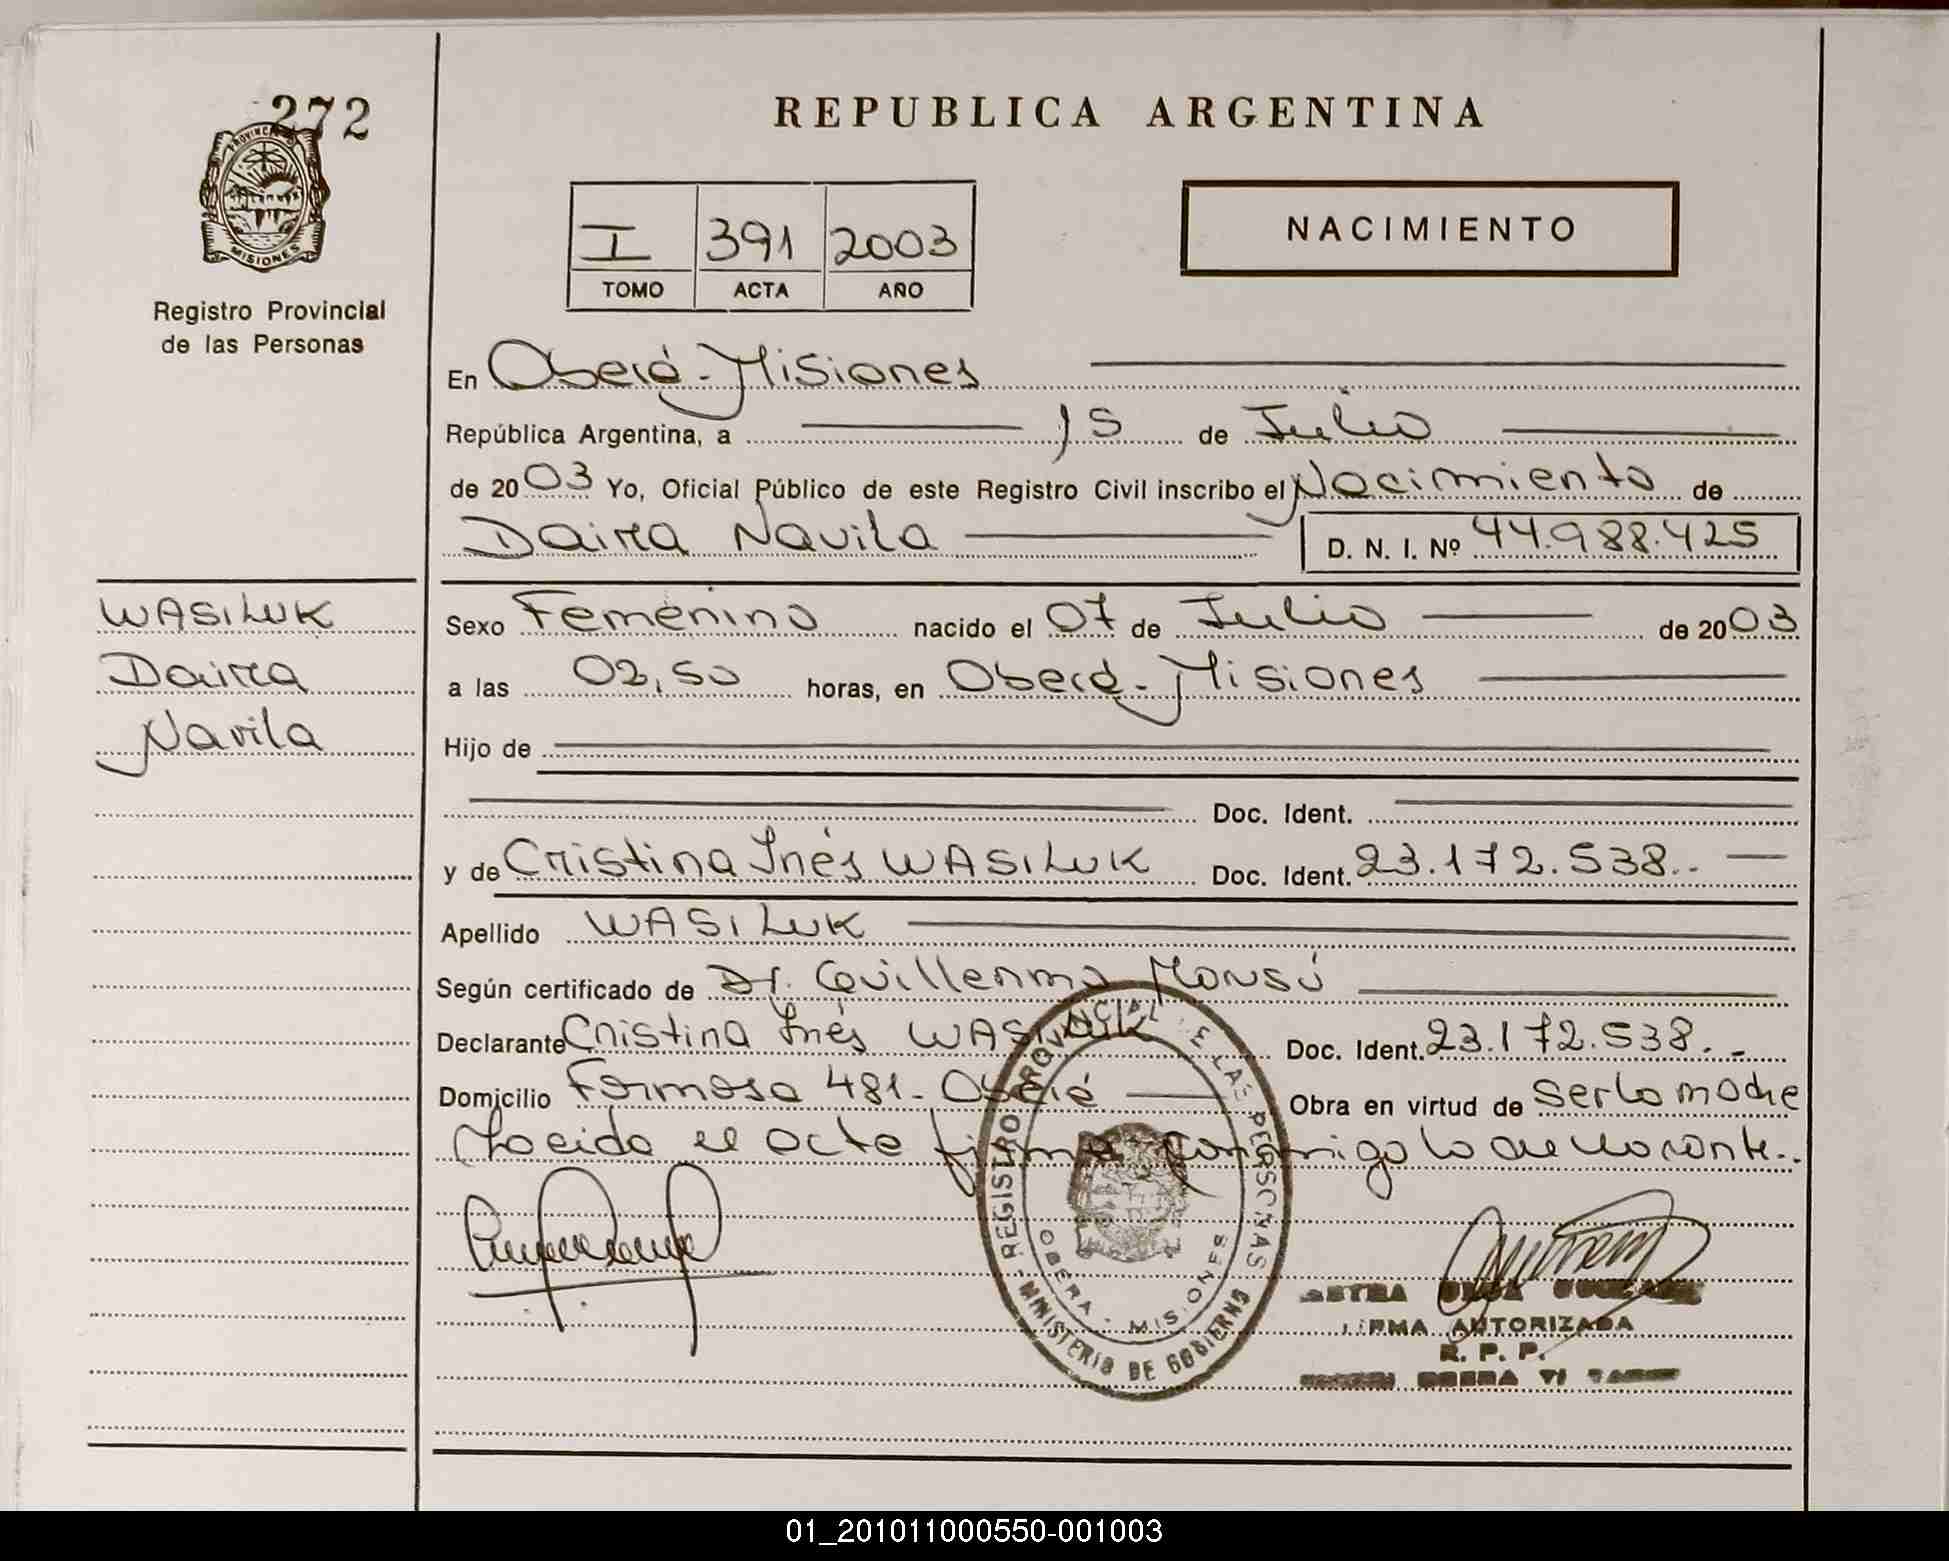 272
PROVINCIA
MISIONES
Registro Provincial
de las Personas
REPUBLICA ARGENTINA
I 391 2003
TOMO ACTA AÑO
NACIMIENTO
En Oberá - Misiones
República Argentina, a 15 de Julio
de 2003 Yo, Oficial Público de este Registro Civil inscribo el Nacimiento de
Daira Navila D. N. I. Nº 44.988.425
WASILUK
Daira
Navila
Sexo Femenino nacido el 07 de Julio de 2003
a las 02,50 horas, en Oberá - Misiones
Hijo de
Doc. Ident.
y de Cristina Inés WASILUK Doc. Ident. 23.172.538.-
Apellido WASILUK
Según certificado de Dr. Guillermo Monsú
Declarante Cristina Inés WASILUK Doc. Ident. 23.172.538.-
Domicilio Formosa 481 - Oberá Obra en virtud de ser la madre
Leída el acta firma conmigo la declarante..
REGISTRO PROVINCIAL DE LAS PERSONAS
OBERA - MISIONES
MINISTERIO DE GOBIERNO
FIRMA AUTORIZADA
R. P. P.
01_201011000550-001003